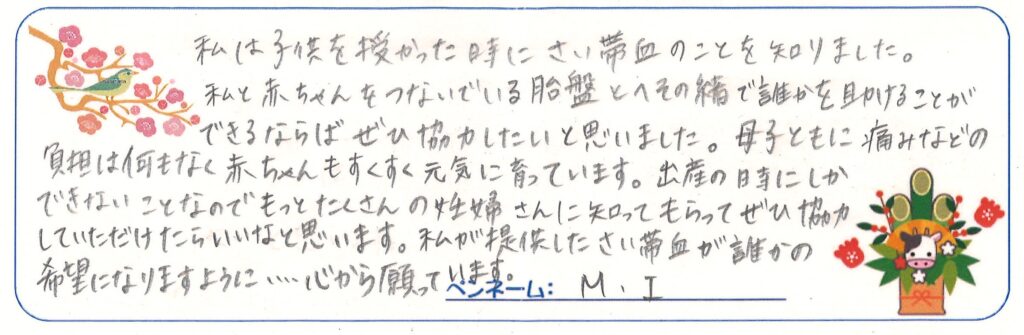 私は子供を授かった時にさい帯血のことを知りました。
私と赤ちゃんをつないでいる胎盤とへその緒で誰かを助けることが
できるならばぜひ協力したいと思いました。母子ともに痛みなどの
負担は何もなく赤ちゃんもすくすく元気に育っています。出産の時にしか
できないことなのでもっとたくさんの妊婦さんに知ってもらってぜひ協力
していただけたらいいなと思います。私が提供したさい帯血が誰かの
希望になりますように……心から願っています。
ペンネーム: M.I